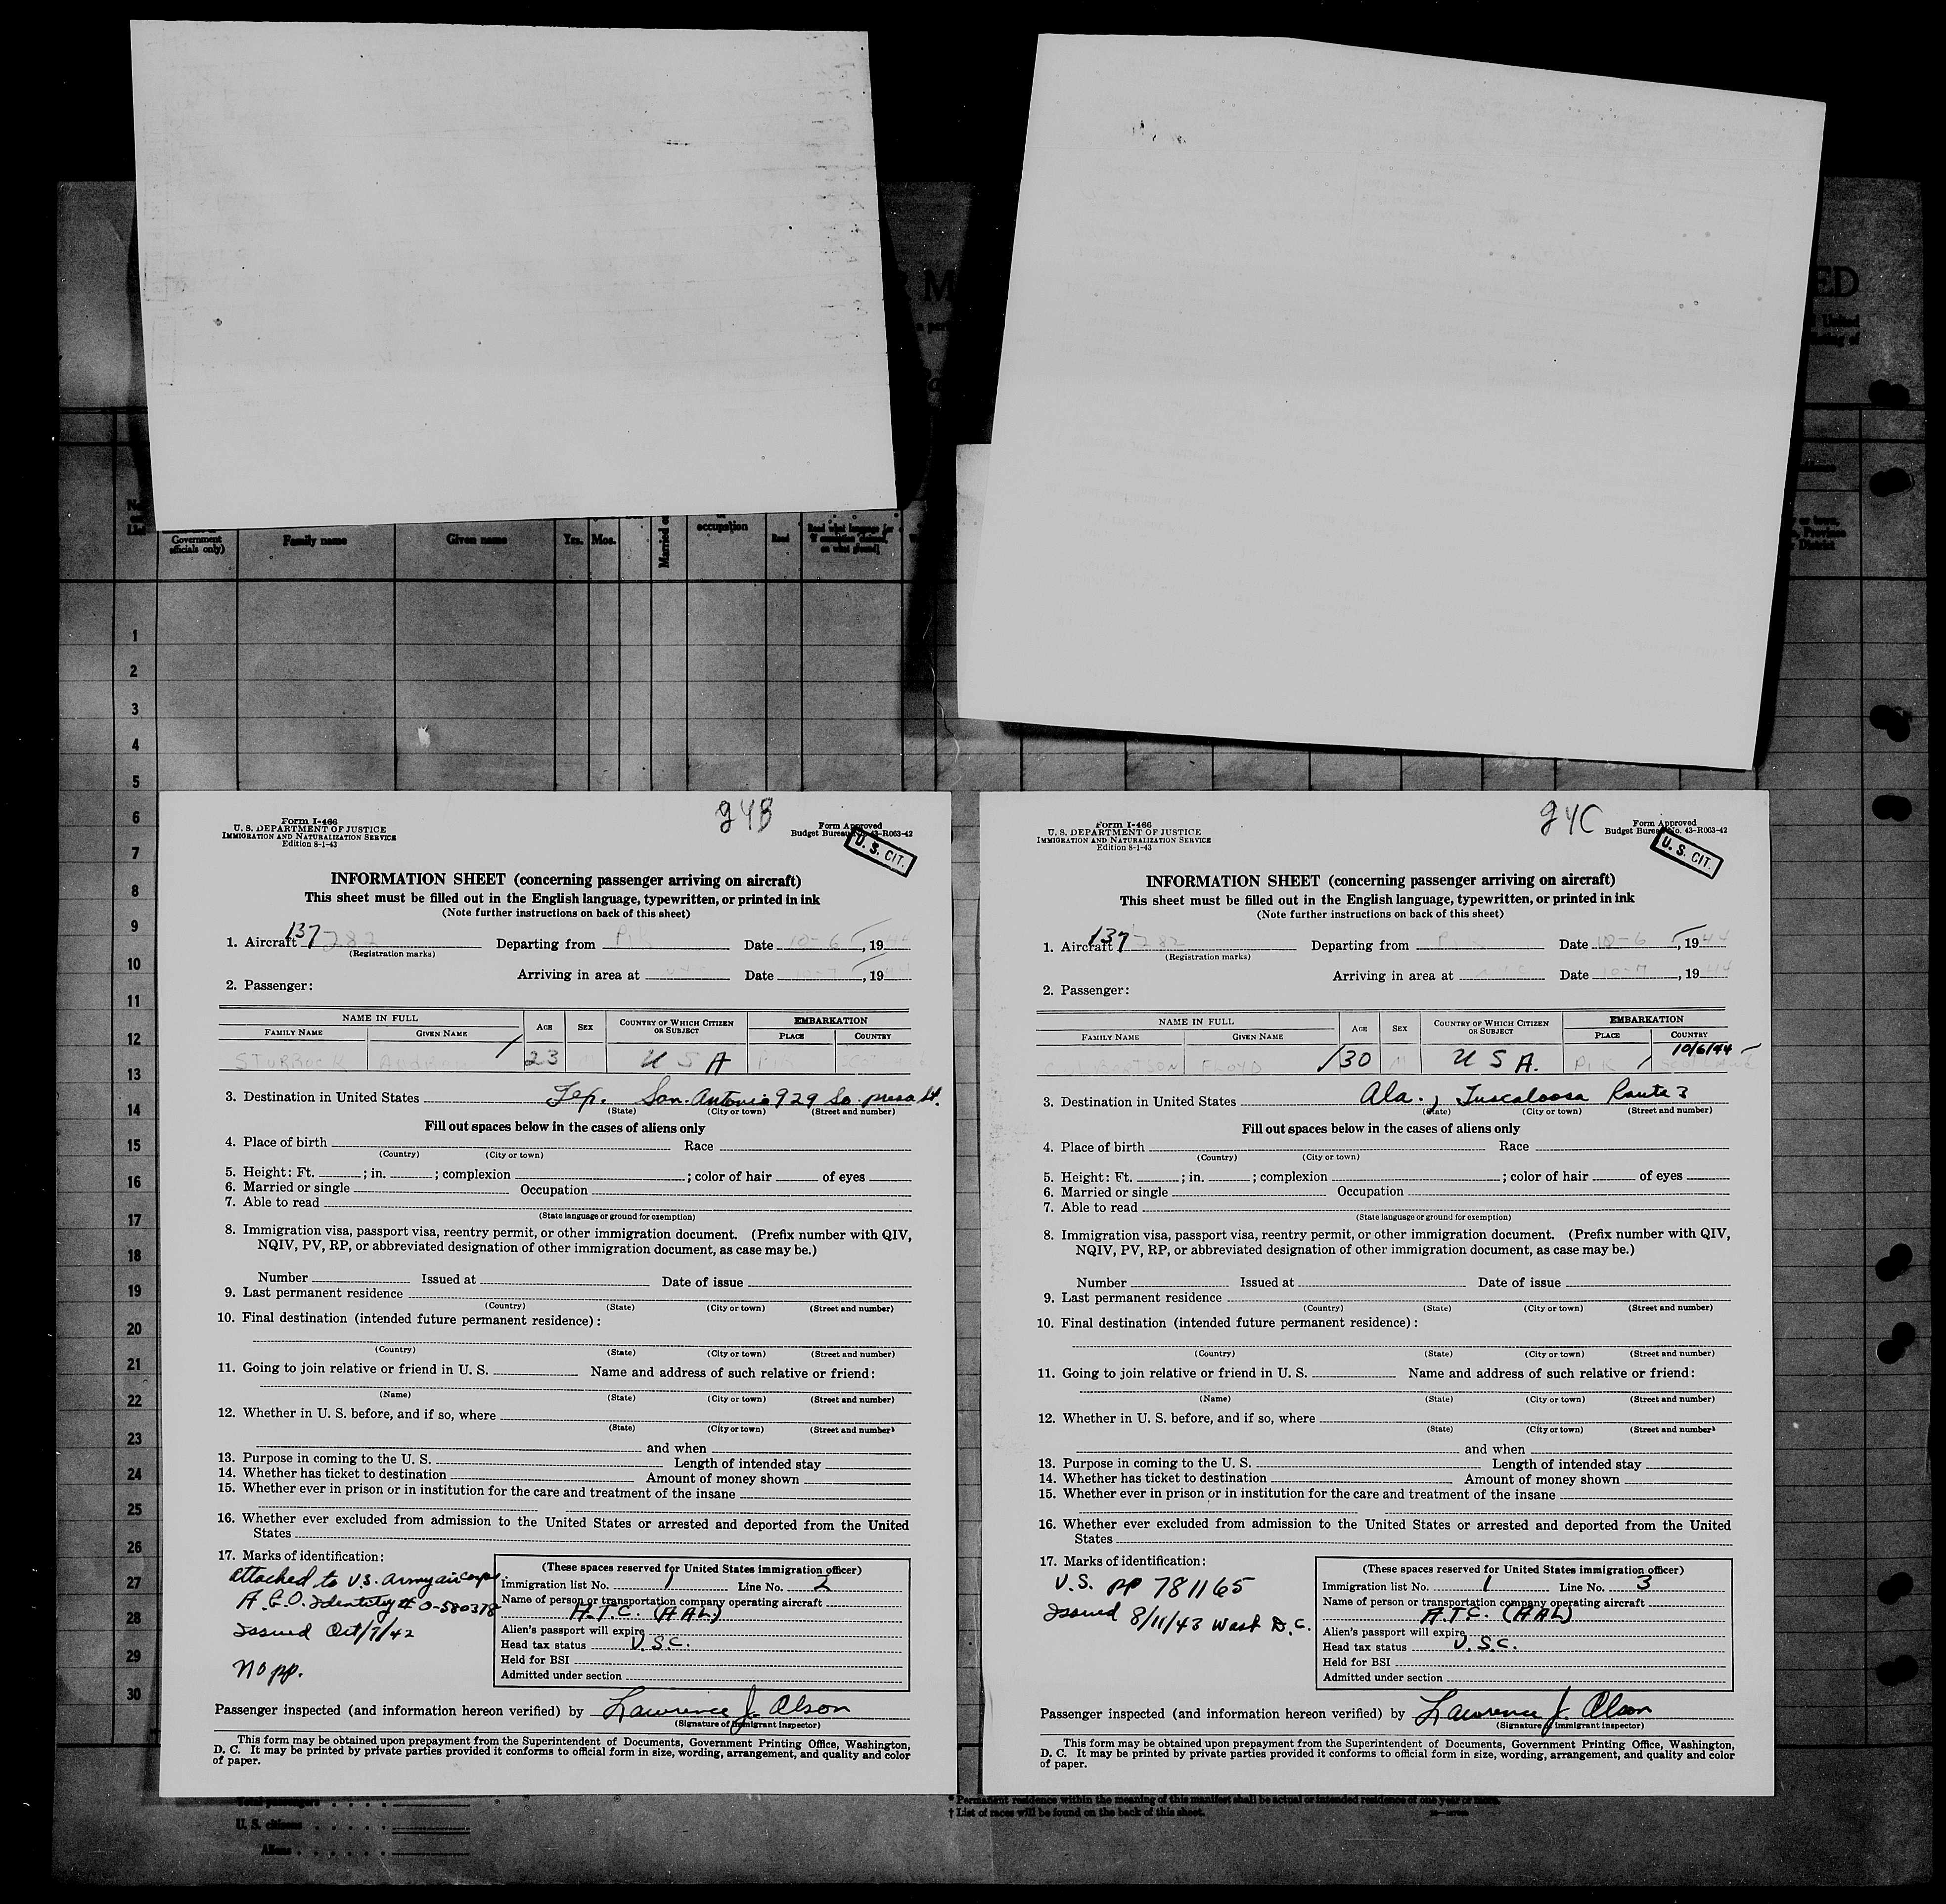 occupation
Government
officials only)
Family name
Given name
Yrs.
Mos.
Read
1
2
3
4
5
6
7
8
9
10
11
12
13
14
15
16
17
18
19
20
21
22
23
24
25
26
27
28
29
30
g4B
Form I-466
U. S. DEPARTMENT OF JUSTICE
IMMIGRATION AND NATURALIZATION SERVICE
Edition 8-1-43
Form Approved
Budget Bureau No. 43-R063-42
U. S. CIT.
INFORMATION SHEET (concerning passenger arriving on aircraft)
This sheet must be filled out in the English language, typewritten, or printed in ink
(Note further instructions on back of this sheet)
1. Aircraft 137 282 Departing from Pik Date 10-6, 1944
(Registration marks)
Arriving in area at Date 10-7, 19
2. Passenger:
NAME IN FULL AGE SEX COUNTRY OF WHICH CITIZEN OR SUBJECT EMBARKATION
FAMILY NAME GIVEN NAME PLACE COUNTRY
23 M U S A
3. Destination in United States San. Antonio 929 So. presa St.
(State) (City or town) (Street and number)
Fill out spaces below in the cases of aliens only
4. Place of birth Race
(Country) (City or town)
5. Height: Ft. ; in. ; complexion ; color of hair of eyes
6. Married or single Occupation
7. Able to read
(State language or ground for exemption)
8. Immigration visa, passport visa, reentry permit, or other immigration document. (Prefix number with QIV,
NQIV, PV, RP, or abbreviated designation of other immigration document, as case may be.)
Number Issued at Date of issue
9. Last permanent residence
(Country) (State) (City or town) (Street and number)
10. Final destination (intended future permanent residence):
(Country) (State) (City or town) (Street and number)
11. Going to join relative or friend in U. S. Name and address of such relative or friend:
(Name) (State) (City or town) (Street and number)
12. Whether in U. S. before, and if so, where
(State) (City or town) (Street and number)
and when
13. Purpose in coming to the U. S. Length of intended stay
14. Whether has ticket to destination Amount of money shown
15. Whether ever in prison or in institution for the care and treatment of the insane
16. Whether ever excluded from admission to the United States or arrested and deported from the United
States
17. Marks of identification:
attached to U.S. Army air corps.
A.G.O. Identity # O-580378
Issued Oct/7/42
No pp.
(These spaces reserved for United States immigration officer)
Immigration list No. 1 Line No. 2
Name of person or transportation company operating aircraft
A.T.C. (AAL)
Alien's passport will expire
Head tax status U.S.C.
Held for BSI
Admitted under section
Passenger inspected (and information hereon verified) by Lawrence J. Olson
(Signature of immigrant inspector)
This form may be obtained upon prepayment from the Superintendent of Documents, Government Printing Office, Washington,
D. C. It may be printed by private parties provided it conforms to official form in size, wording, arrangement, and quality and color
of paper.
g4C
Form I-466
U. S. DEPARTMENT OF JUSTICE
IMMIGRATION AND NATURALIZATION SERVICE
Edition 8-1-43
Form Approved
Budget Bureau No. 43-R063-42
U. S. CIT.
INFORMATION SHEET (concerning passenger arriving on aircraft)
This sheet must be filled out in the English language, typewritten, or printed in ink
(Note further instructions on back of this sheet)
1. Aircraft 137 282 Departing from Pik Date 10-6, 1944
(Registration marks)
Arriving in area at Date 10-7, 1944
2. Passenger:
NAME IN FULL AGE SEX COUNTRY OF WHICH CITIZEN OR SUBJECT EMBARKATION
FAMILY NAME GIVEN NAME PLACE COUNTRY
10/6/44
FLOYD 30 M U S A. Pik
3. Destination in United States Ala., Tuscaloosa Route 3
(State) (City or town) (Street and number)
Fill out spaces below in the cases of aliens only
4. Place of birth Race
(Country) (City or town)
5. Height: Ft. ; in. ; complexion ; color of hair of eyes
6. Married or single Occupation
7. Able to read
(State language or ground for exemption)
8. Immigration visa, passport visa, reentry permit, or other immigration document. (Prefix number with QIV,
NQIV, PV, RP, or abbreviated designation of other immigration document, as case may be.)
Number Issued at Date of issue
9. Last permanent residence
(Country) (State) (City or town) (Street and number)
10. Final destination (intended future permanent residence):
(Country) (State) (City or town) (Street and number)
11. Going to join relative or friend in U. S. Name and address of such relative or friend:
(Name) (State) (City or town) (Street and number)
12. Whether in U. S. before, and if so, where
(State) (City or town) (Street and number)
and when
13. Purpose in coming to the U. S. Length of intended stay
14. Whether has ticket to destination Amount of money shown
15. Whether ever in prison or in institution for the care and treatment of the insane
16. Whether ever excluded from admission to the United States or arrested and deported from the United
States
17. Marks of identification:
U.S. pp 781165
Issued 8/11/43 Wash D.C.
(These spaces reserved for United States immigration officer)
Immigration list No. 1 Line No. 3
Name of person or transportation company operating aircraft
A.T.C. (AAL)
Alien's passport will expire
Head tax status U.S.C.
Held for BSI
Admitted under section
Passenger inspected (and information hereon verified) by Lawrence J. Olson
(Signature of immigrant inspector)
This form may be obtained upon prepayment from the Superintendent of Documents, Government Printing Office, Washington,
D. C. It may be printed by private parties provided it conforms to official form in size, wording, arrangement, and quality and color
of paper.
* Permanent residence within the meaning of this manifest shall be actual or intended residence of one year or more.
† List of races will be found on the back of this sheet.
U. S. citizens
Aliens